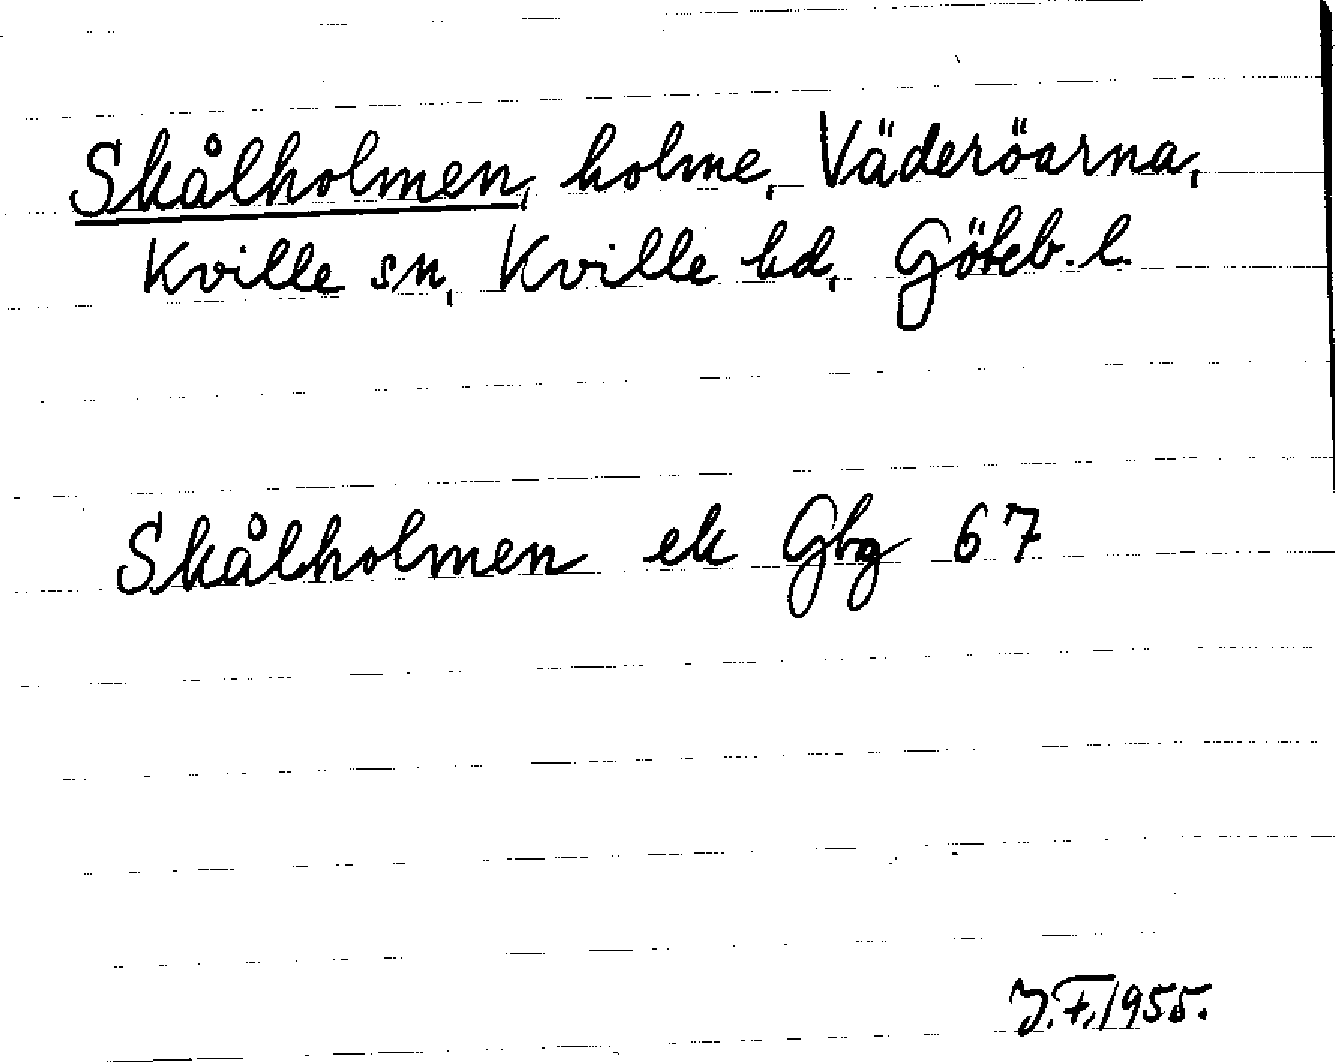 Skålholmen, holme, Väderöarna,
Kville sn, Kville hd, Göteb. l.
Skålholmen ek Gbg 67
J.F. 1955.